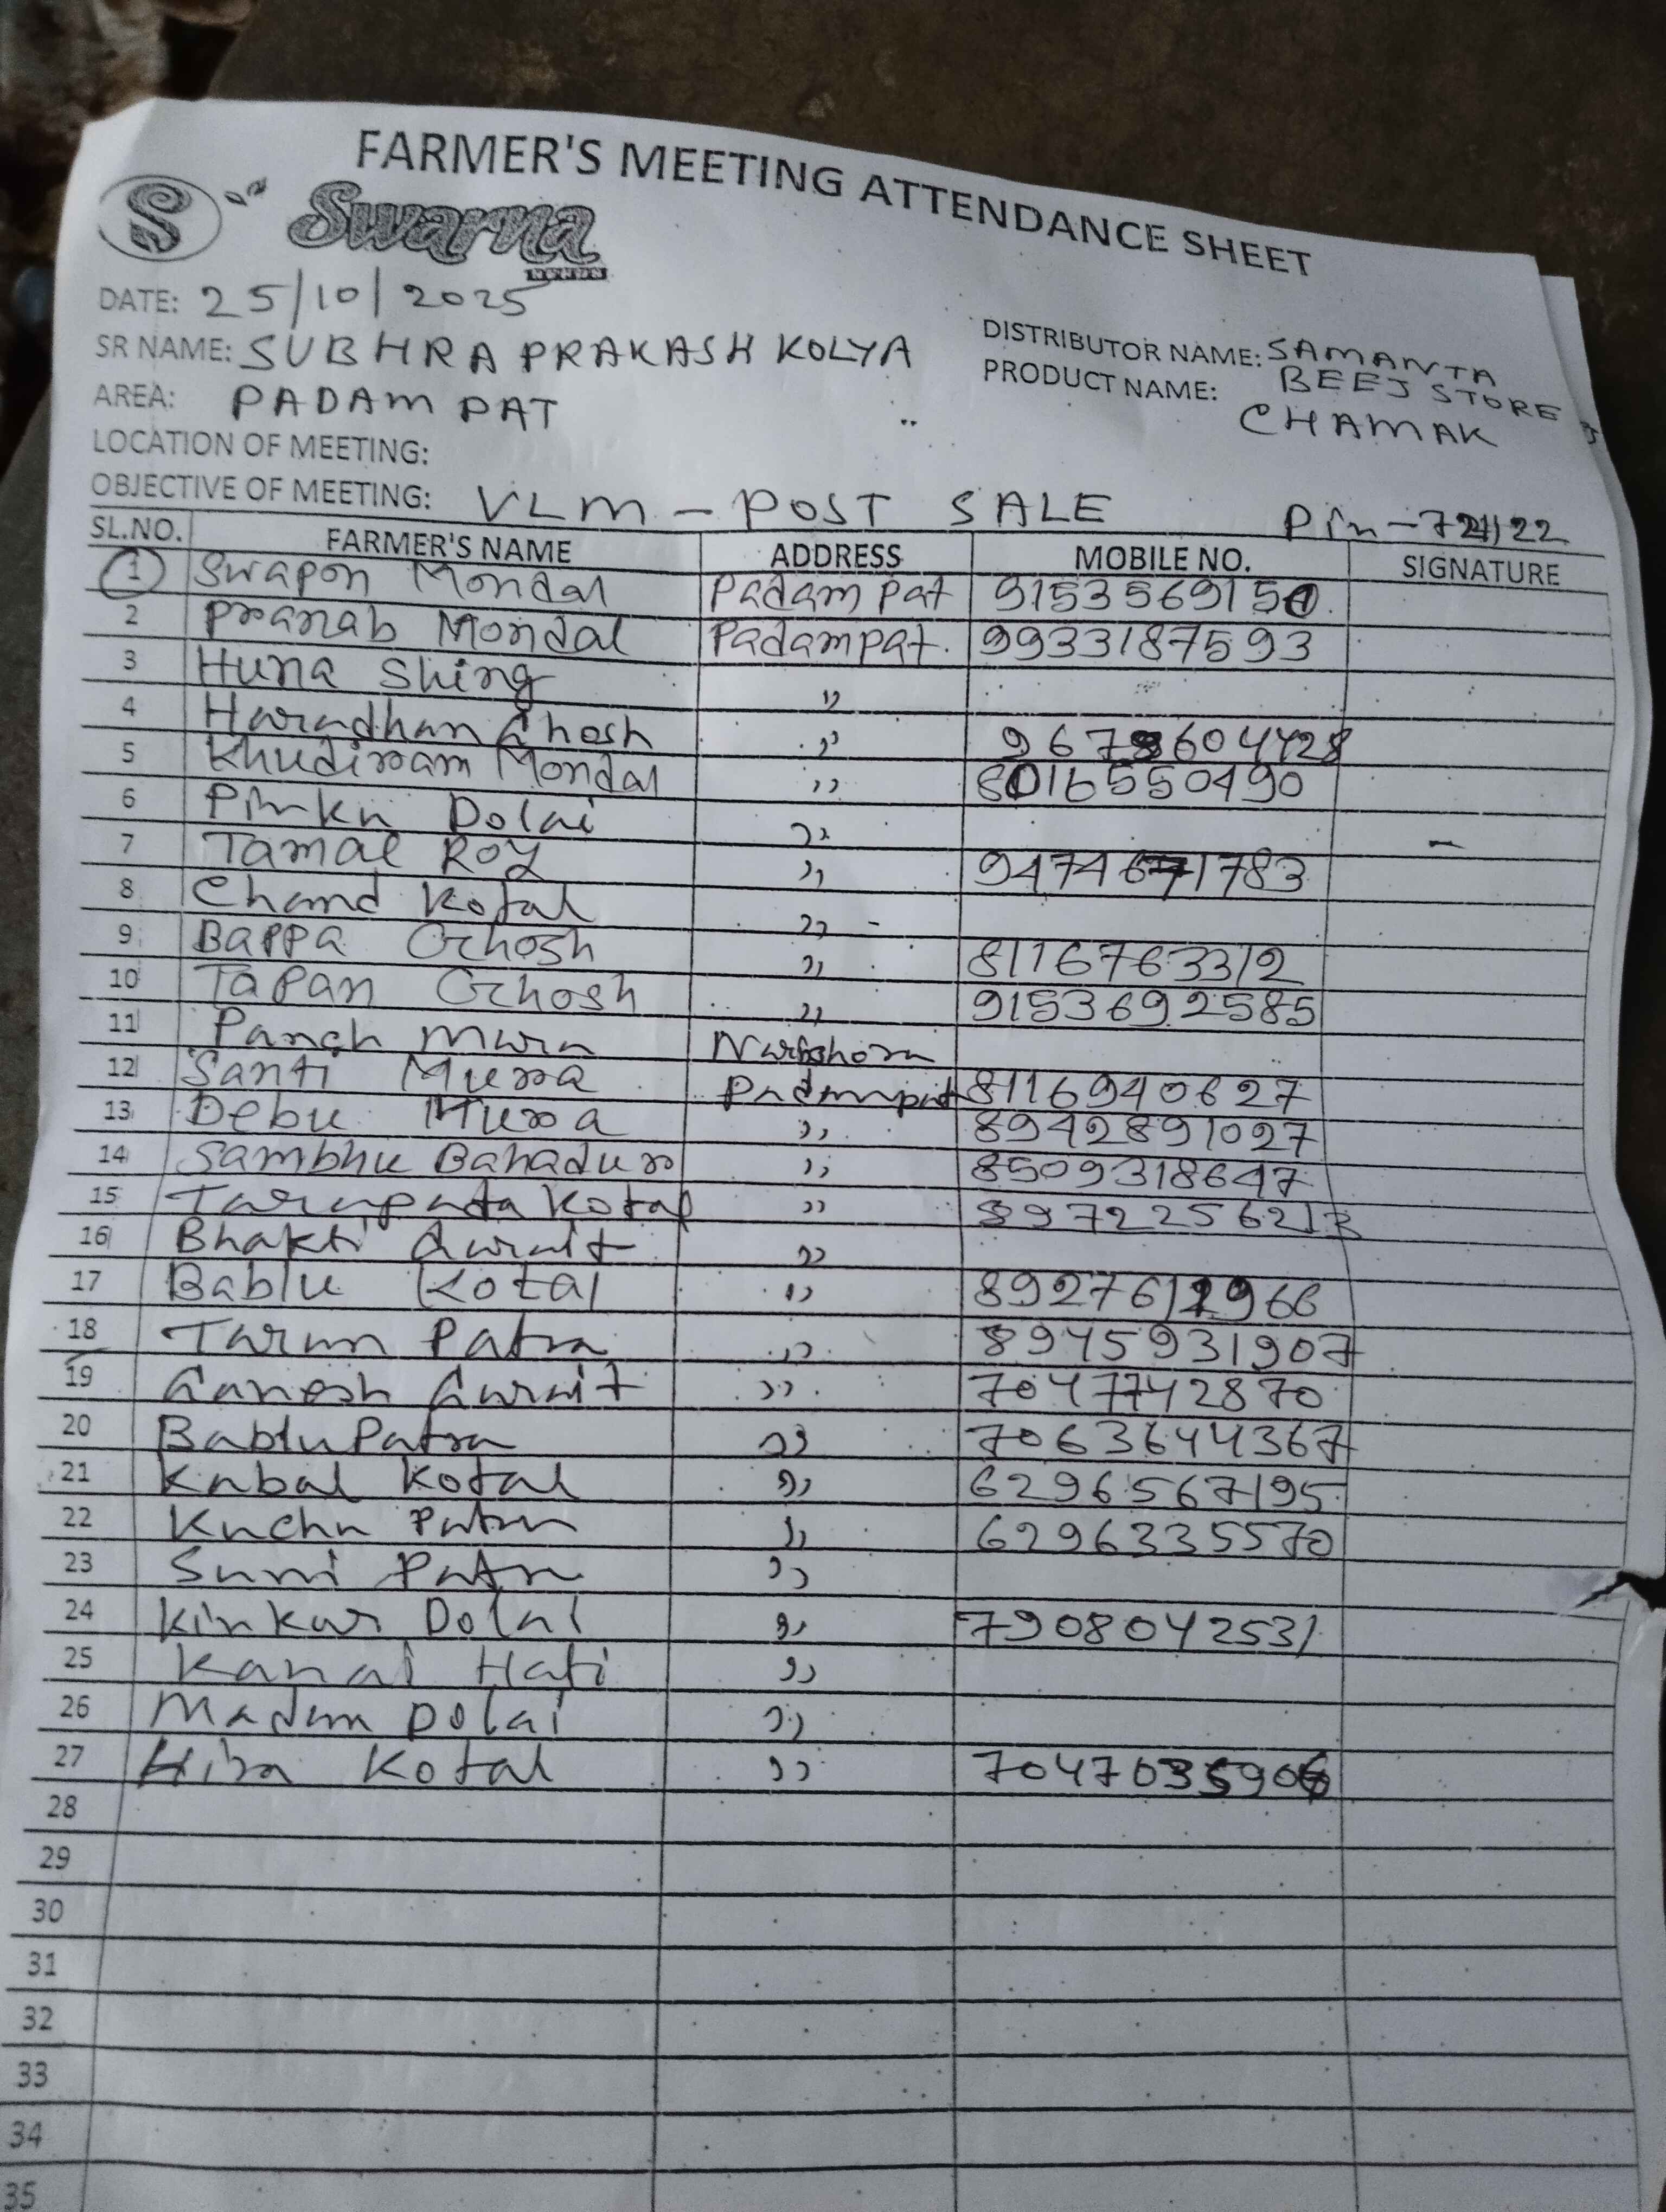 FARMER'S MEETING ATTENDANCE SHEET
S Swarna
DATE: 25/10/2025
SR NAME: SUBHRA PRAKASH KOLYA
DISTRIBUTOR NAME: SAMANTA BEEJ STORE
AREA: PADAM PAT
PRODUCT NAME: CHAMAK
LOCATION OF MEETING:
OBJECTIVE OF MEETING: VLM - POST SALE Pin-721122
SL.NO. FARMER'S NAME ADDRESS MOBILE NO. SIGNATURE
1 Swapon Mondal Padam pat 9153569150
2 Pranab Mondal Padampat. 9933187593
3 Huna Shing ,,
4 Haradhan Ghosh ,,
5 Khudiram Mondal ,, 8016550490
6 Pinku Dolai ,,
7 Tamal Roy ,,
8 Chand Kotal ,, -
9 Bappa Ghosh ,, 8116763312
10 Tapan Ghosh ,, 9153692585
11 Panch Mura
12 Santi Mura Padampat 8116940627
13 Debu Mura ,, 8942891027
14 Sambhu Bahadur ,, 8509318647
15 Tarapada Kotal ,,
16 Bhakti Gurait ,,
17 Bablu Kotal ,,
18 Tarun Patra ,, 8945931907
19 Ganesh Gurait ,, 7047742870
20 Bablu Patra ,, 7063644367
21 Kabal Kotal ,, 6296567195
22 Kachu Patra ,, 6296335570
23 Suni Patra ,,
24 Kinkar Dolai ,, 7908042531
25 Kanai Hati ,,
26 Madan Dolai ,,
27 Hira Kotal ,, 7047035906
28
29
30
31
32
33
34
35